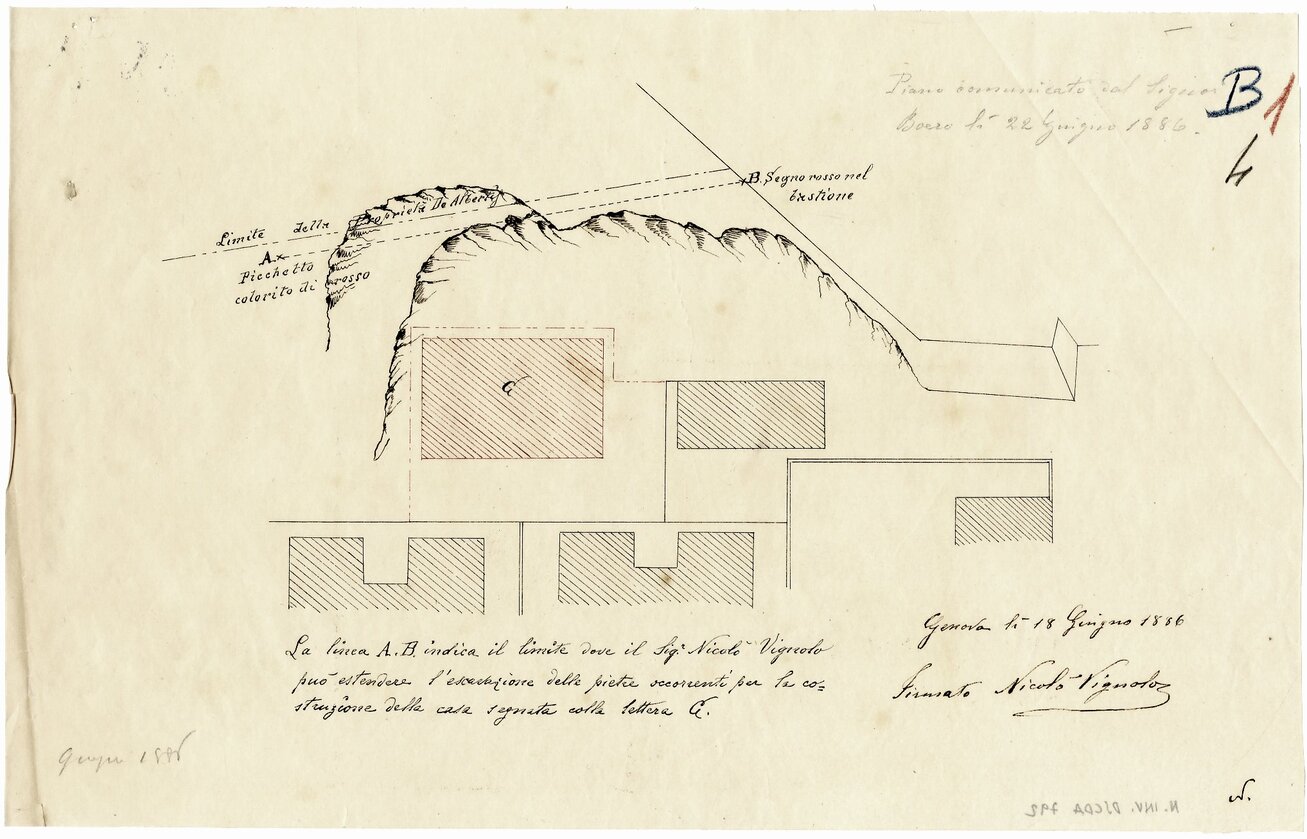 Piano comunicato dal Signor
Boero li 22 Giugno 1886.
B 1
4
B. Segno rosso nel
bastione
Limite della Proprietà De Albertis
A
Picchetto
colorito di rosso
G
La linea A.B. indica il limite dove il Sig.r Nicolò Vignolo
può estendere l'escavazione delle pietre occorrenti per la co=
struzione della casa segnata colla lettera G.
Genova li 18 Giugno 1886
Firmato Nicolò Vignolo
Giugno 1886
N. INV. DJCDA 792